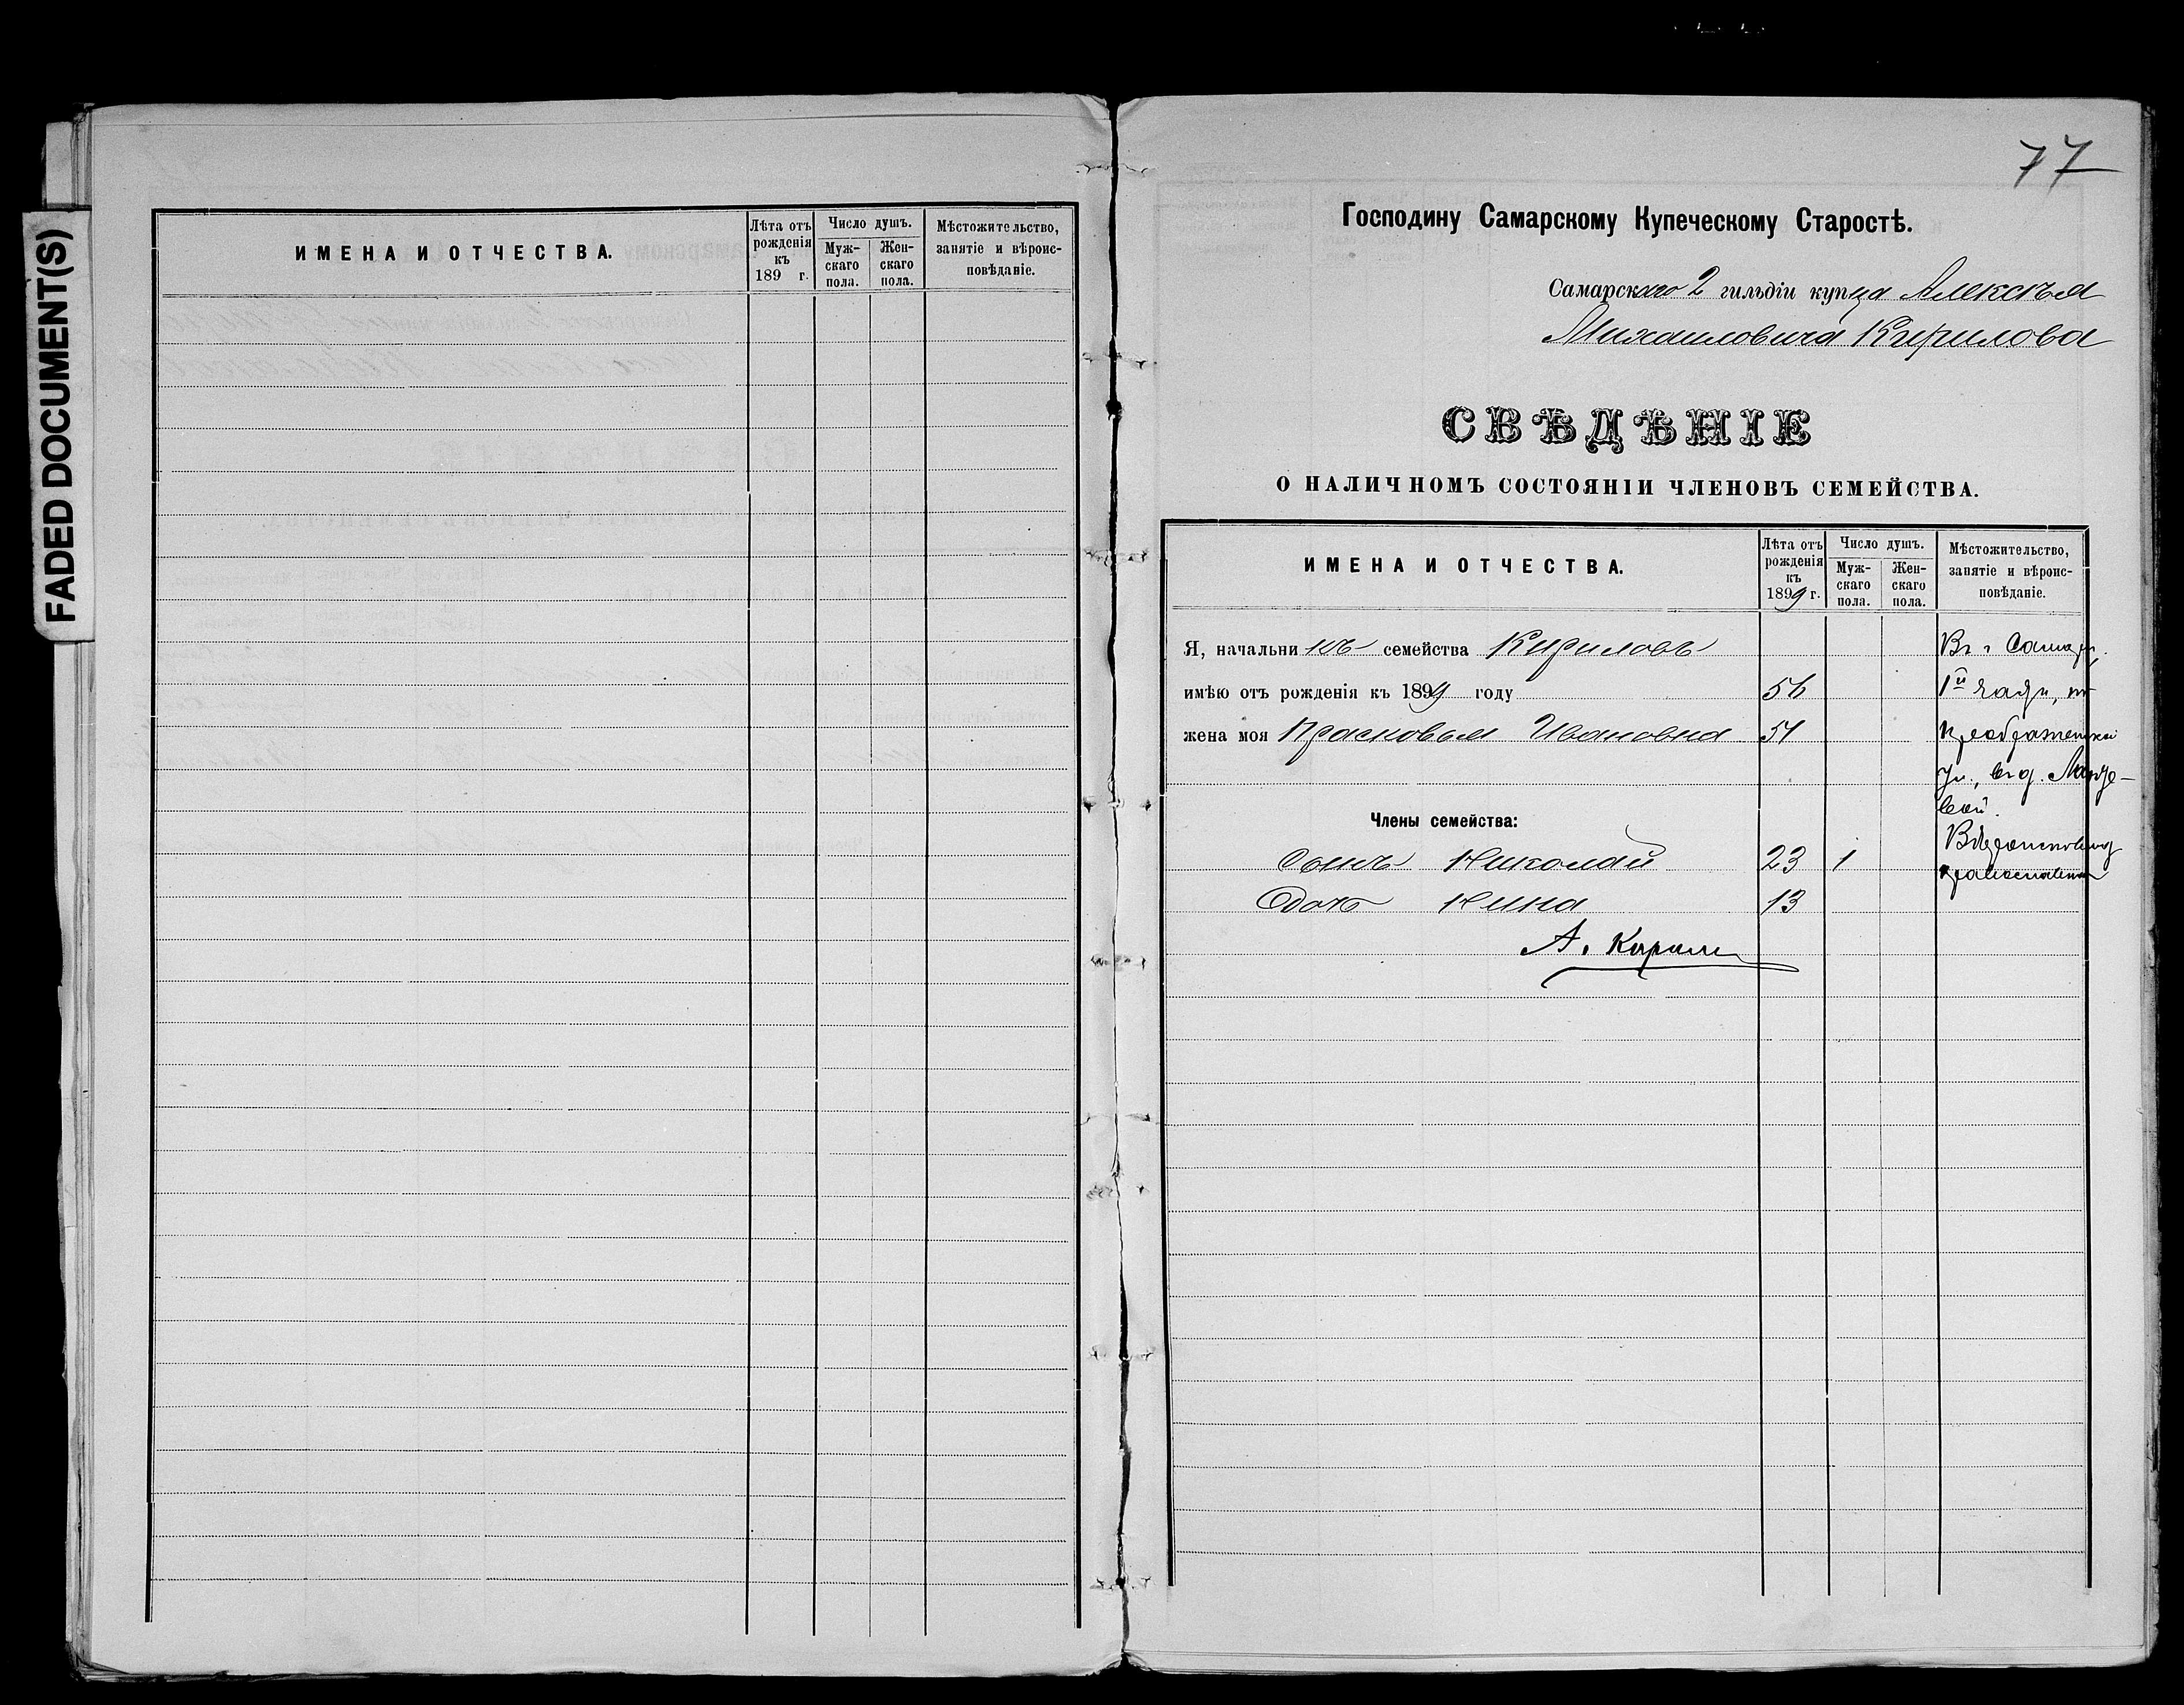 FADED DOCUMENT(S)
ИМЕНА И ОТЧЕСТВА.
Лѣта отъ рожденія къ 189 г.
Число душъ.
Муж-скаго пола.
Жен-скаго пола.
Мѣстожительство, занятіе и вѣроис-повѣданіе.
77
Господину Самарскому Купеческому Старостѣ.
Самарскаго 2 гильдіи купца Алексѣя
Михаиловича Кирилова
СВѢДѢНІЕ
О НАЛИЧНОМЪ СОСТОЯНІИ ЧЛЕНОВЪ СЕМЕЙСТВА.
ИМЕНА И ОТЧЕСТВА.
Лѣта отъ рожденія къ 1899 г.
Число душъ.
Муж-скаго пола.
Жен-скаго пола.
Мѣстожительство, занятіе и вѣроис-повѣданіе.
Я, начальникъ семейства Кириловъ Въ г Самарѣ.
имѣю отъ рожденія къ 1899 году 56 1й части, по
жена моя Прасковья Ивановна 51 Преображенской
ул., въ д.
Члены семейства:
Сынъ Николай 23 1 Вѣроисповѣд
Дочь Нина 13 православнаго
А. Кирилов